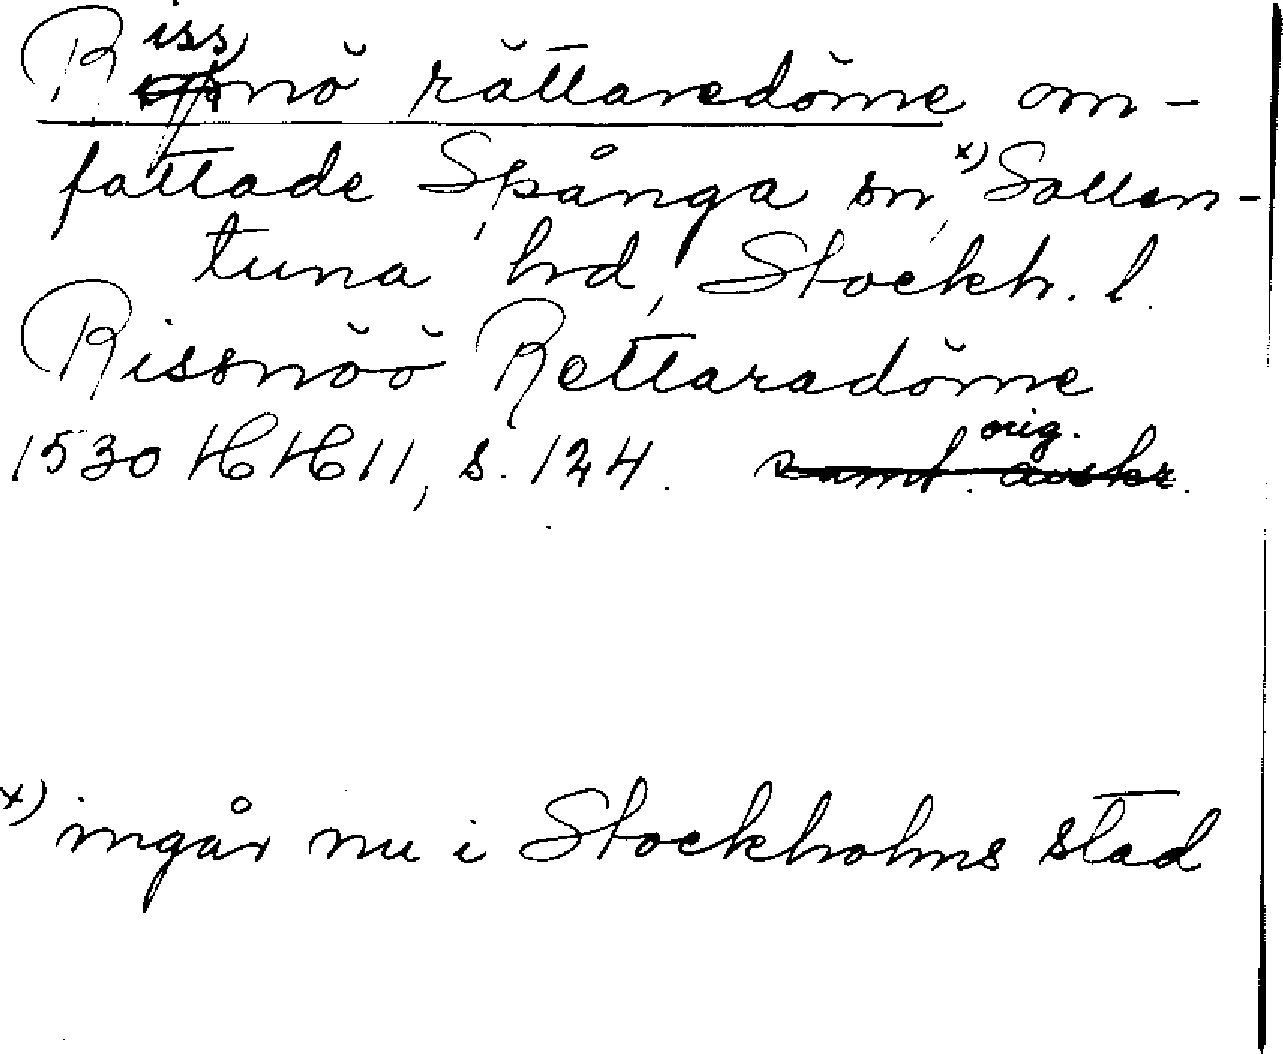 Rissnö rättaredöme om-
fattade Spånga sn, x) Sollen-
tuna hrd, Stockh. l.
Rissnöö Rettaradöme
1530 HH 11, s. 124. orig.
x) ingår nu i Stockholms stad